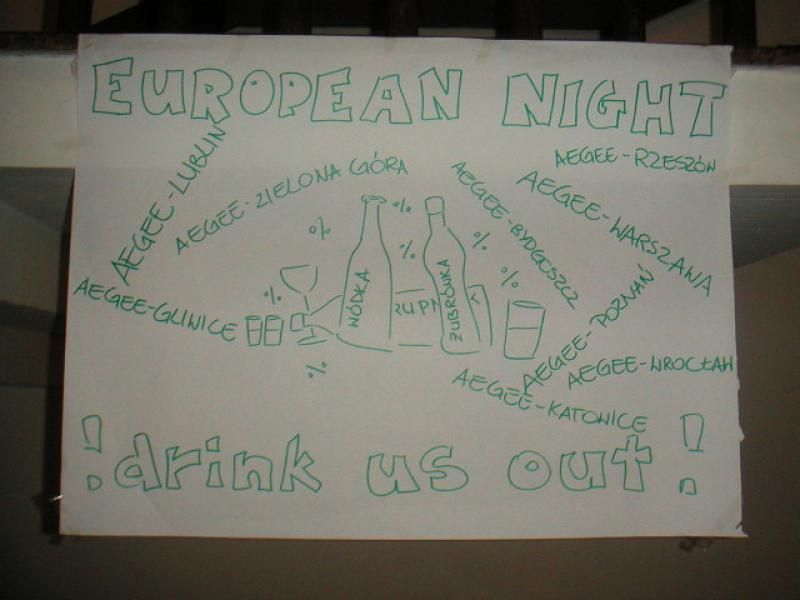 EUROPEAN NIGHT
AEGEE-RZESZÓW
AEGEE-LUBLIN
AEGEE-ZIELONA GÓRA
AEGEE-BYDGOSZCZ
AEGEE-WARSZAWA
AEGEE-GLIWICE
% % % % % % %
WÓDKA
ŻUBRÓWKA
AEGEE-POZNAŃ
AEGEE-WROCŁAW
AEGEE-KATOWICE
! drink us out !